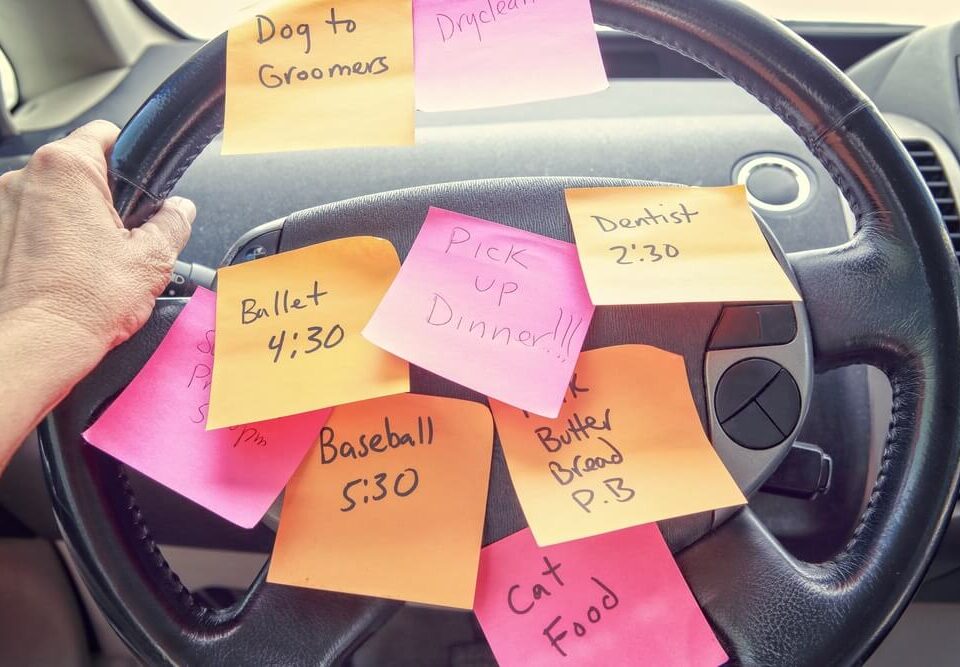 Dog to
Groomers
Dryclean
Dentist
2:30
Pick
up
Dinner!!!
Ballet
4:30
Baseball
5:30
Butter
Bread
P.B
pm
Cat
Food